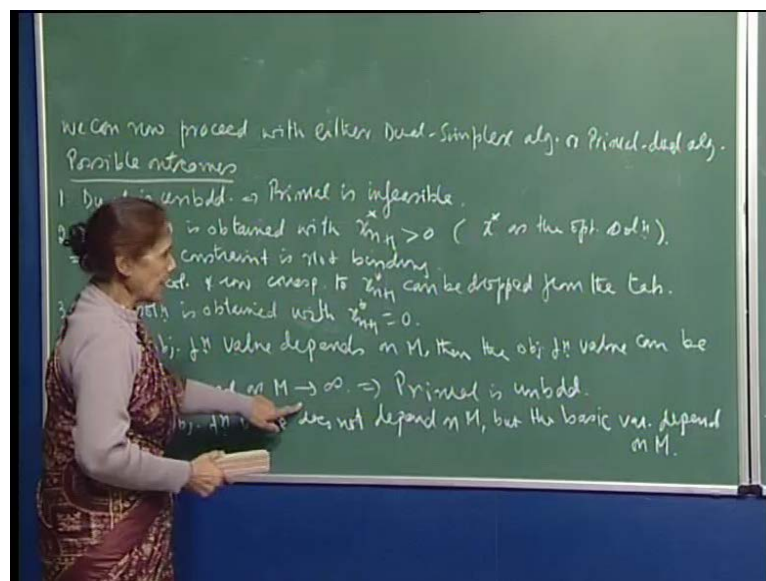 We can now proceed with either Dual-Simplex alg. or Primal-dual alg.
Possible outcomes
1. Dual is unbdd. ⇒ Primal is infeasible.
2. is obtained with x*ₙ₊₁ > 0 ( x* as the opt. Solⁿ).
constraint is not binding.
col. & row corresp. to x*ₙ₊₁ can be dropped from the tab.
3. solⁿ is obtained with x*ₙ₊₁ = 0.
obj. fⁿ value depends on M, then the obj fⁿ value can be
M → ∞ ⇒ Primal is unbdd.
obj. fⁿ does not depend on M, but the basic var. depend
on M.